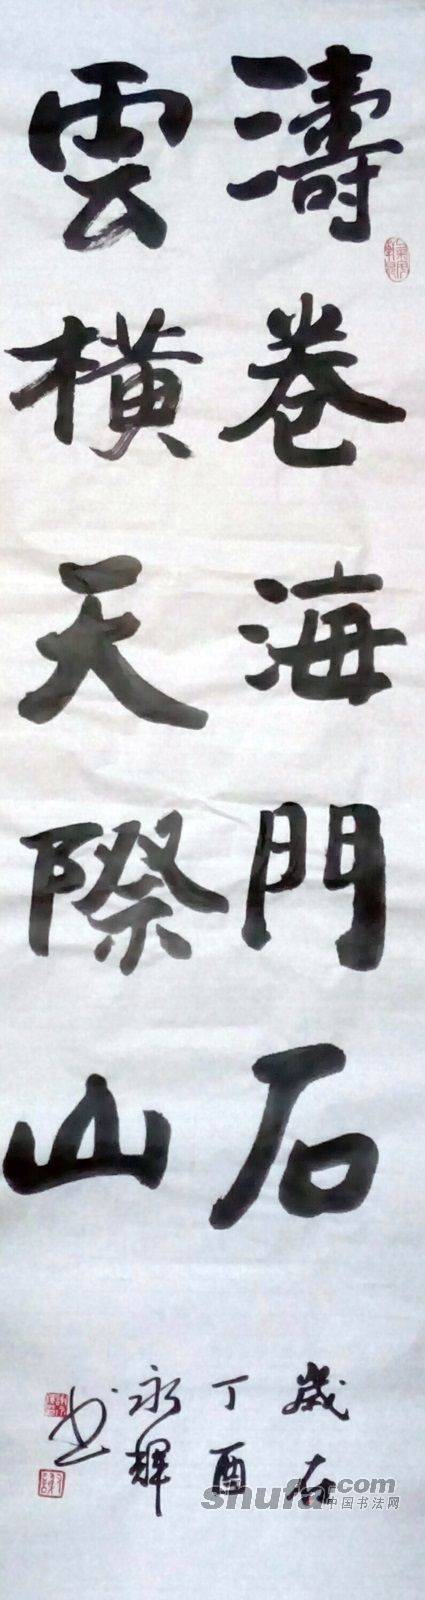 濤卷海門石
雲橫天際山
歲在
丁酉
永輝
書
shufa.com
中国书法网